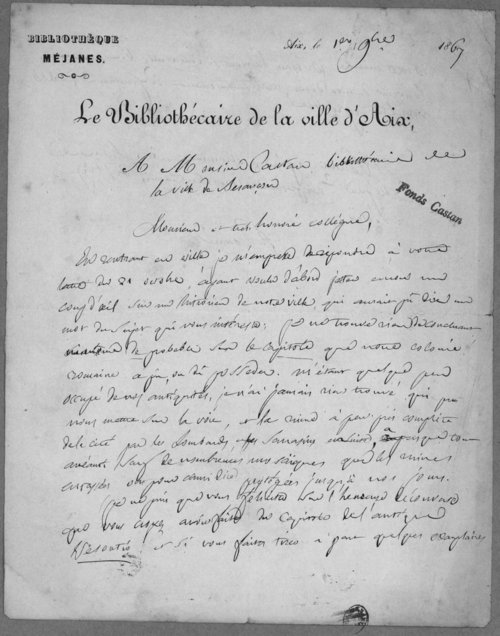 BIBLIOTHÈQUE
MÉJANES.
Aix, le 1er 9bre 1867
Le Bibliothécaire de la ville d'Aix,
A Monsieur Castan bibliothécaire de
la ville de Besançon
Fonds Castan
Monsieur et très honoré collègue,
En rentrant en ville je m'empresse de répondre à votre
lettre du 21 octobre, ayant voulu d'abord jeter encore un
coup d'œil sur les historiens de notre ville qui auraient pu dire un
mot du sujet qui vous intéresse; je ne trouve rien de concluant
de probable sur le capitole que notre colonie
romaine a pu, ou dû posséder. M'étant quelque peu
occupé de nos antiquités, je n'ai jamais rien trouvé qui pu
nous mettre sur la voie, et la ruine à peu près complète
de la cité par les Lombards et les Sarrasins
sauf de nombreuses mosaïques que les ruines
ont pour ainsi dire protégées jusqu'à nos jours.
je ne puis que vous féliciter sur l'heureuse découverte
que vous avez faite du capitole de l'antique
Vesontio! et si vous faites tirer à part quelques exemplaires